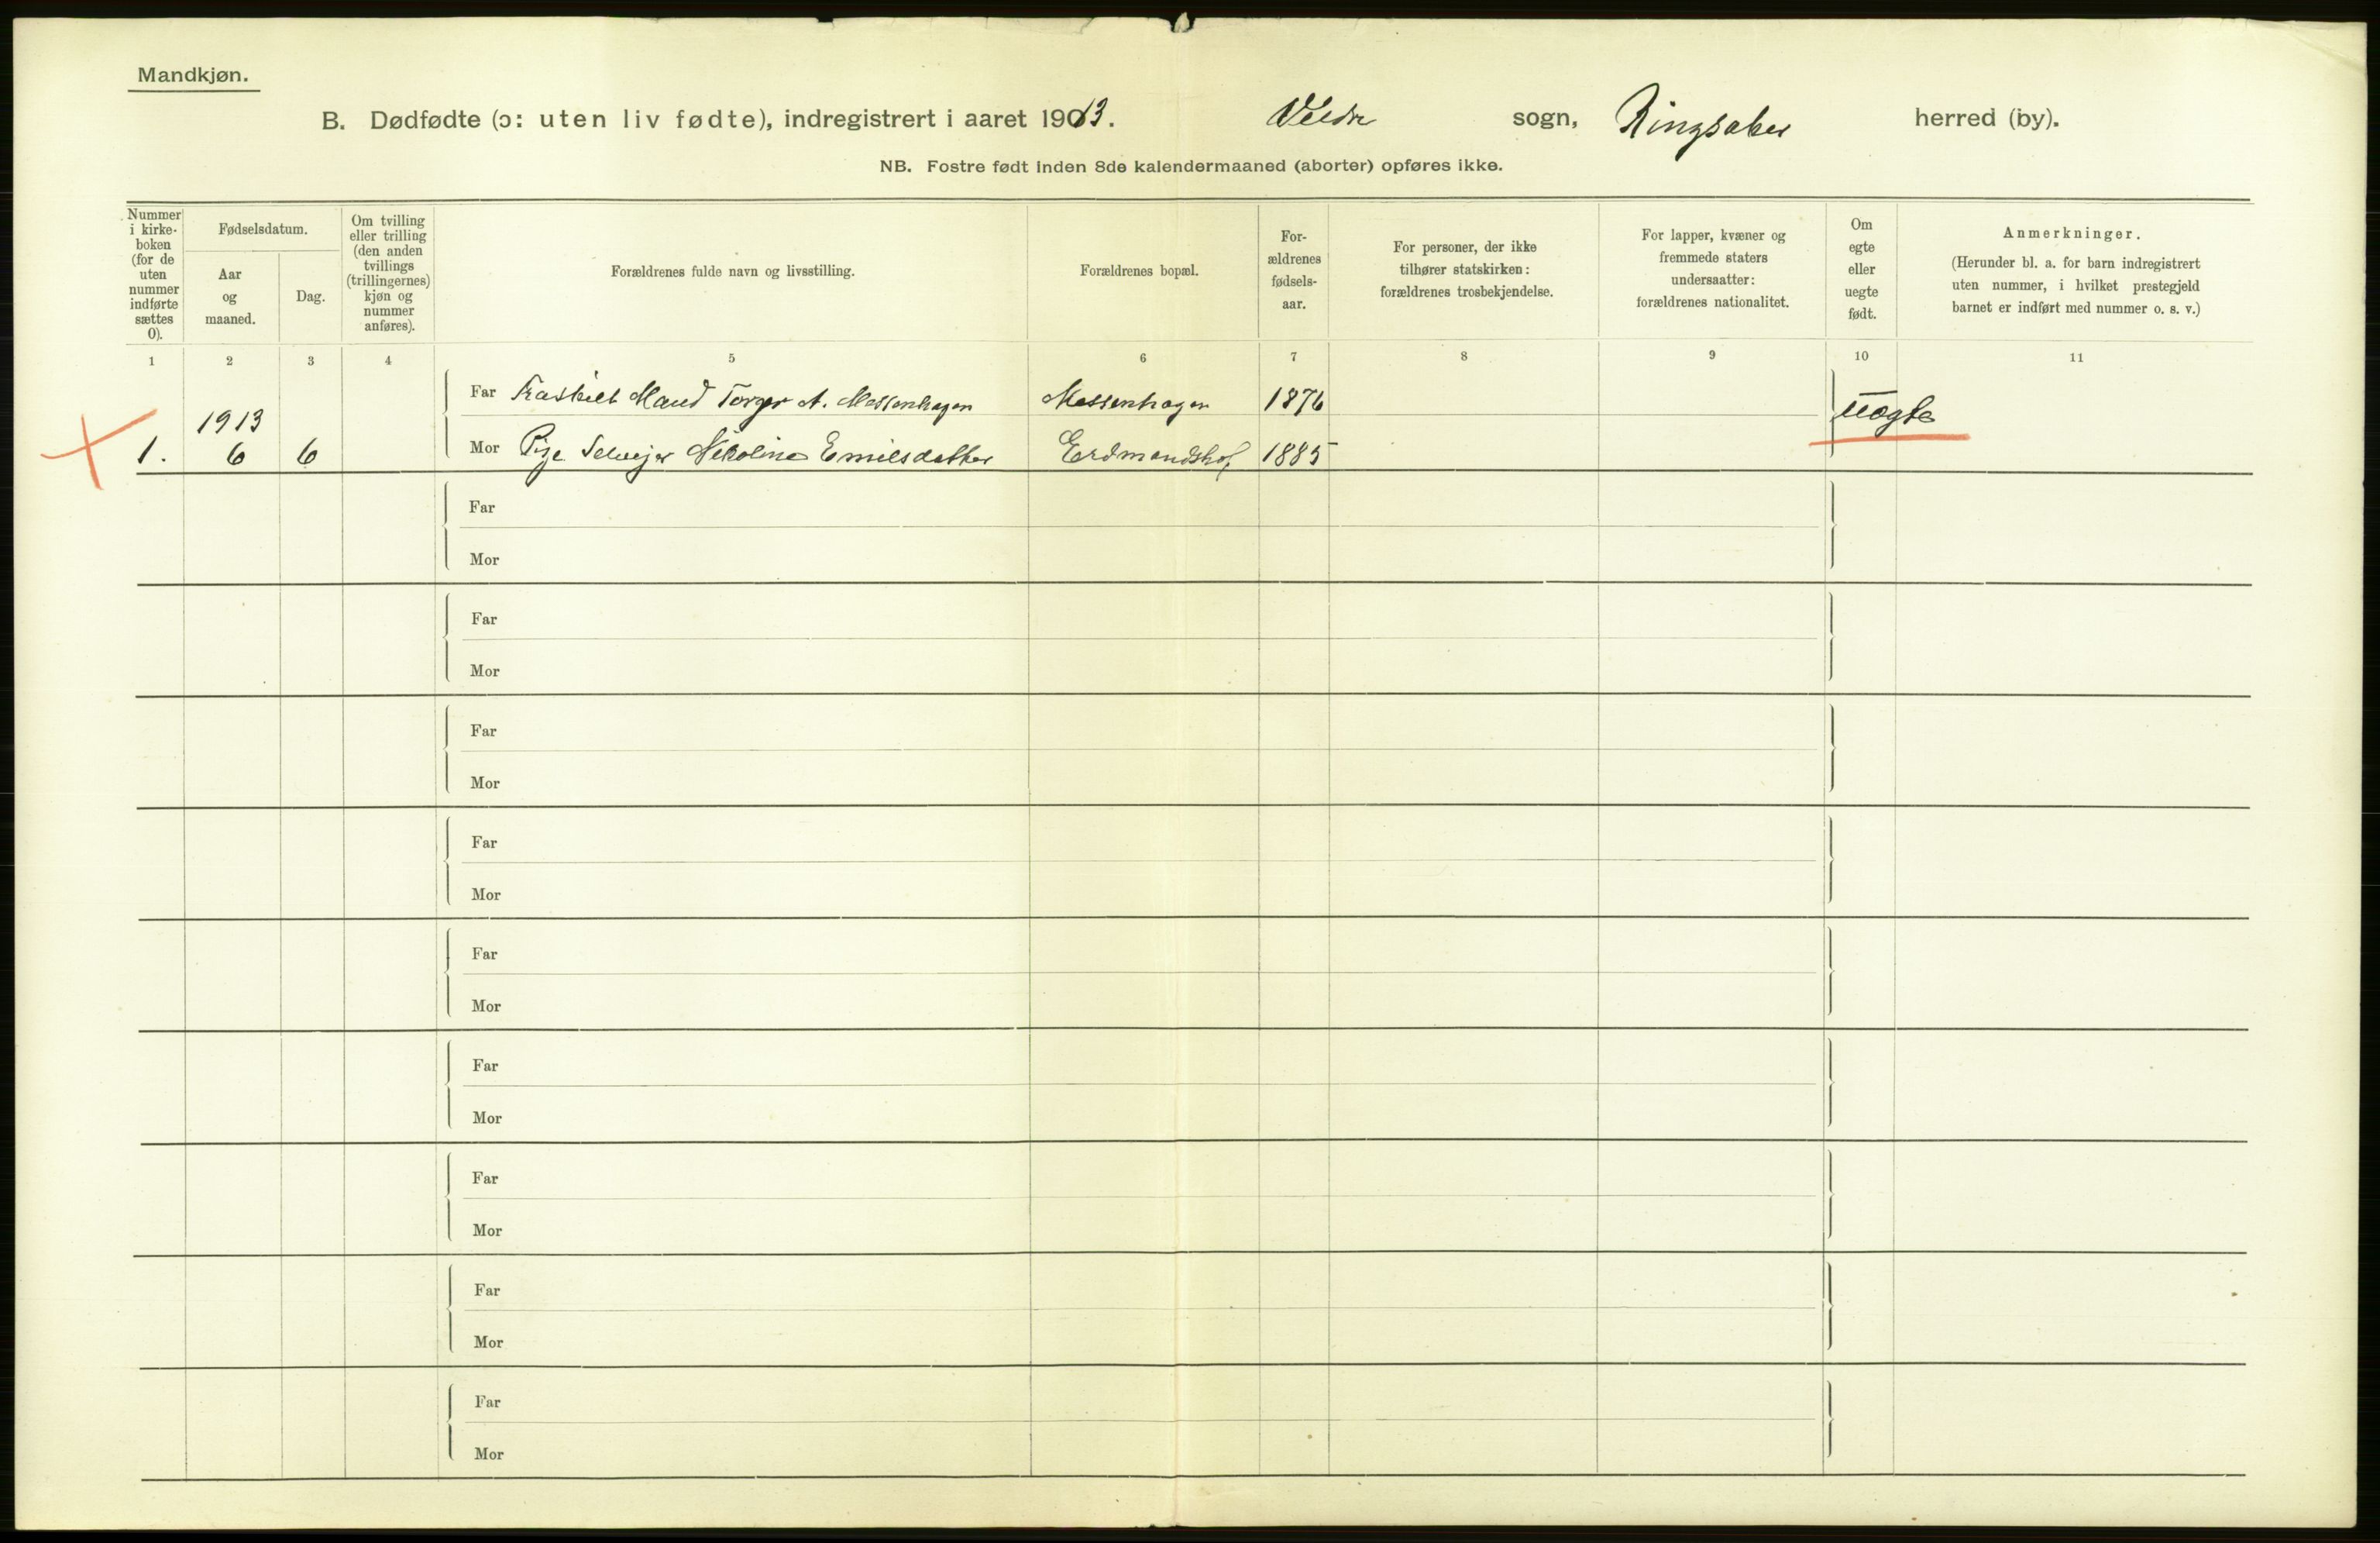 Mandkjøn.
B. Dødfødte (ɔ: uten liv fødte), indregistrert i aaret 1913. Veldre sogn, Ringsaker herred (by).
NB. Fostre født inden 8de kalendermaaned (aborter) opføres ikke.
Nummer i kirke-boken (for de uten nummer indførte sættes 0).
Fødselsdatum.
Aar og maaned.
Dag.
Om tvilling eller trilling (den anden tvillings (trillingernes) kjøn og nummer anføres).
Forældrenes fulde navn og livsstilling.
Forældrenes bopæl.
For-ældrenes fødsels-aar.
For personer, der ikke tilhører statskirken: forældrenes trosbekjendelse.
For lapper, kvæner og fremmede staters undersaatter: forældrenes nationalitet.
Om egte eller uegte født.
Anmerkninger.
(Herunder bl. a. for barn indregistrert uten nummer, i hvilket prestegjeld barnet er indført med nummer o. s. v.)
1 2 3 4 5 6 7 8 9 10 11
Far Fraskilt Mand Torger A. Messenhagen Messenhagen 1876 uægte
1. 1913 6 6 Mor Pige Nikoline Emilsdatter Erdmandshof 1885
Far
Mor
Far
Mor
Far
Mor
Far
Mor
Far
Mor
Far
Mor
Far
Mor
Far
Mor
Far
Mor